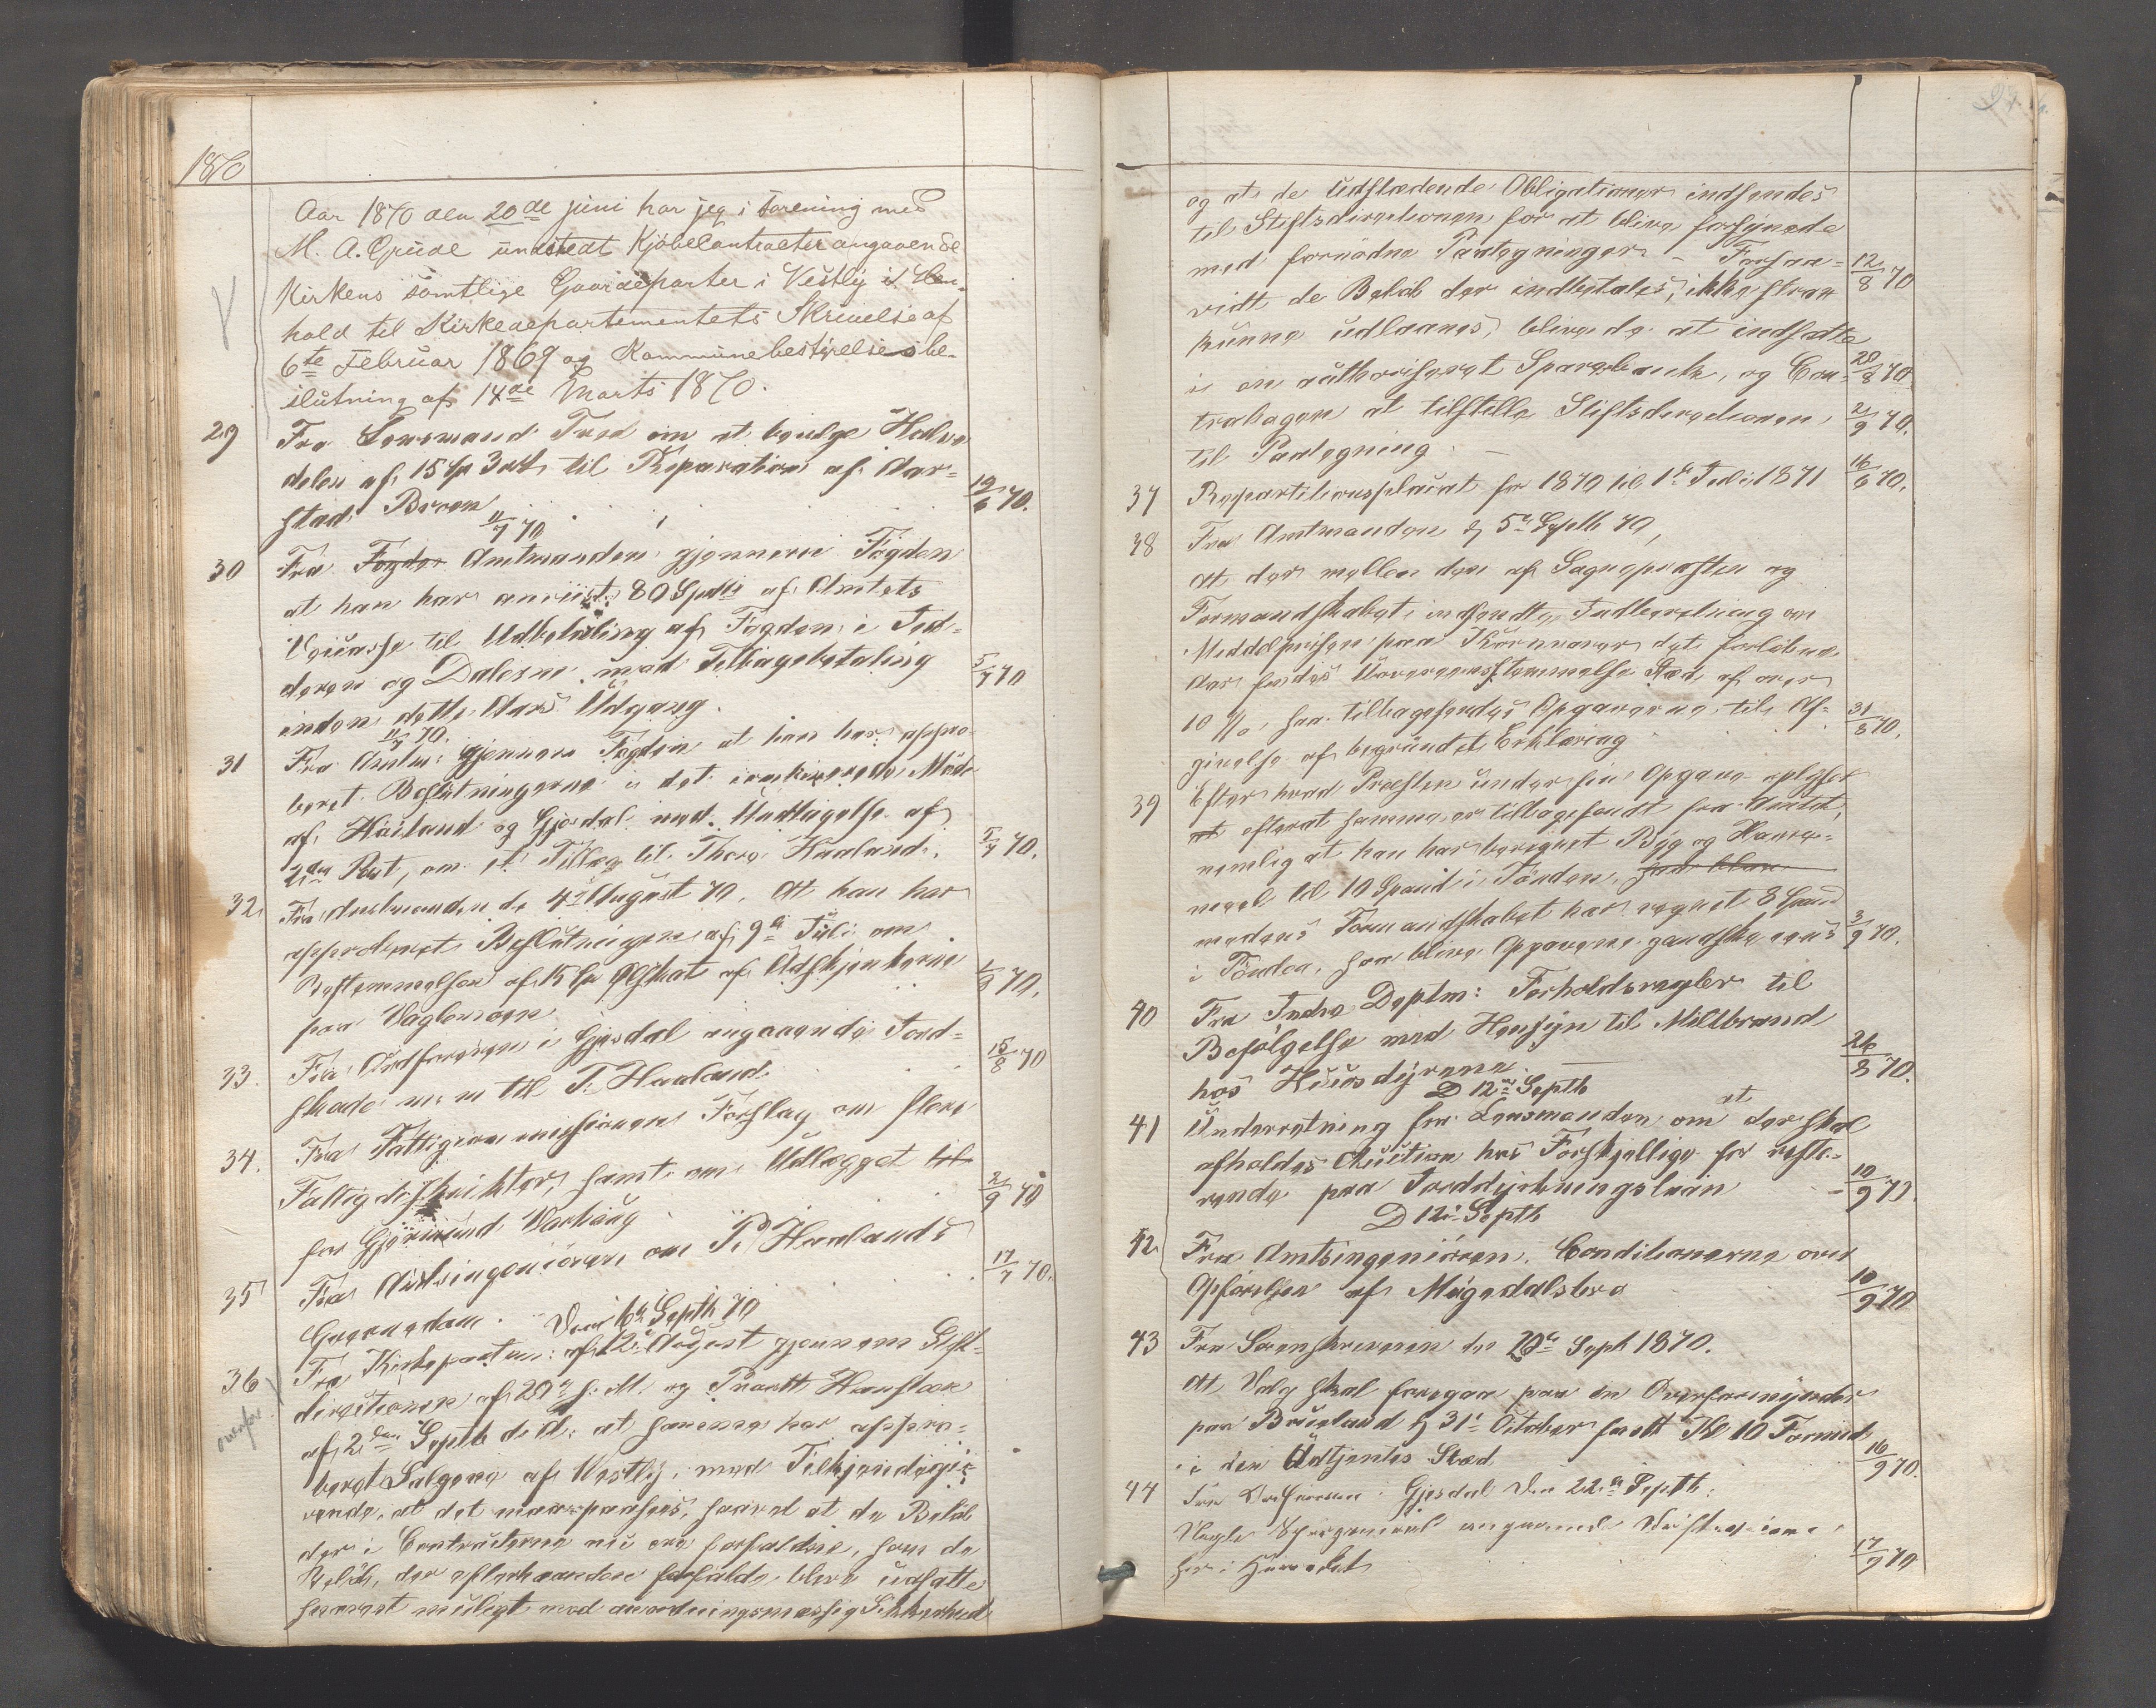 1870
Aar 1870 den 20de juni har jeg i forening med
M. A. Grude undstedt Kjøbekontracter angaaende
Kirkens samtlige Gaardeparter i Vestly i Hen-
hold til Kirkedepartementets Skrivelse af
6te Februar 1869 og Kommunebestyrelsesbe-
slutning af 14de Marts 1870.
29 Fra Lensmand Tred om at bevilge Halve
delen af 15 Sp 3 ort til Reparation af Aar-
stad Broen 19/6 70.
11/7 70
30 Fra Fogden Amtmanden gjennem Fogden
at han har anviist 80 Spdlr af Amtets
Veicasse til Udbetaling af Fogden i Jed-
deren og Dalerne mod Tilbagebetaling 5/7 70
inden dette Aars Udgang.
11/7 70.
31 Fra Amtm: gjennem Fogden at han har appro-
beret Beslutningerne i det combinerede Møde
af Høiland og Gjesdal med Undtagelse af
2den Post, om et Tillæg til Thore Haaland. 5/7 70.
32 Fra Amtmanden de 4de August 70. At han har
approberet Beslutningen af 9de Juli om
Bestemmelsen af 15 Sp Ølskat af Udskjenkerne
paa Vaglemoen 70.
33. Fra Ordføreren i Gjesdal angaaende Jord-
skade m: m til T. Haaland. 15/8 70
34. Fra Fattigcommissionen Forslag om flere
Fattigdistrikter, samt om Udlægget til
for Gjørmund Varhaug 2/9 70
35 Fra Amtsingeniøren om T. Haalands
Grernedam. 17/7 70.
Den 6te Septb 70
36 Fra Kirkepartm: af 12te August gjennem Stift-
directionen af 29de s. M. og Provst Hauslan
af 2den Septb d: A: at samme har appro-
beret Salgene af Vestly, med Tilkjendegi-
vende, at det maa paasees, saavel at de Beløb
der i Contracterne nu ere forfaldne, som de
Beløb, der efterhaanden forfalde, blive udsatte
snarest muligt mod anordningsmæssig Sikkerhed
overfør
og at de Udstædende Obligationer indsendes
til Stiftsdirectionen for at blive forsynede
med fornødne Paategninger – Forsaa- 12/8 70
vidt de Beløb der indbetales, ikke strax
kunne udlaanes, blive de at indsætte
i en authoriseret Sparebank, og Con- 20/8 70.
trabøgen at tilstille Stiftsdirectionen 2/9 70.
til Paategning. –
37 Repartitionsplacat for 1870 til 1ste Juli 1871 16/6 70.
38 Fra Amtmanden d 5te Septb 70,
At der mellem den af Sognepresten og
Formandskabet indsendte Indberetning om
Middelprisen paa Kornvarer det forløbne
Aar findes Uoverensstemmelse Sted af over
10 %, saa tilbagesendes Opgaverne til Af- 31/8 70.
givelse af begrundet Erklæring
39 Efter hvad Presten under sin Opgave oplyser
at efterat samme er tilbagesendt fra Amtet,
nemlig at han har beregnet Byg og Havre-
meel til 10 Spand i Tønden,
medens Formandskabet har regnet 8 Spand
i Tønden, saa blive Opgaverne gandske eens 3/9 70.
40 Fra Indre Deptm: Forholdsregler til
Befølgelse med Hensyn til Miltbrand
hos Huusdyrene. 26/8 70.
D 12te Septb
41 Underretning fra Lensmanden om at der skal
afholdes Auction hos Forskjellige for reste-
rende paa Jorddyrkningslaan 10/9 70.
D 12te Septb
42 Fra Amtsingeniøren. Conditionerne over
Opførelsen af Mugedalsbro 10/9 70
43 Fra Sorenskriveren de 20de Sept 1870.
At Valg skal foregaa paa en Overformynder
paa Brueland d 31te October førstk Kl 10 Formid.
i den Udtjentes Sted 16/9 70.
44 Fra Ordføreren i Gjesdal Den 22de Septb:
angaaende
her i Herredet 17/9 70